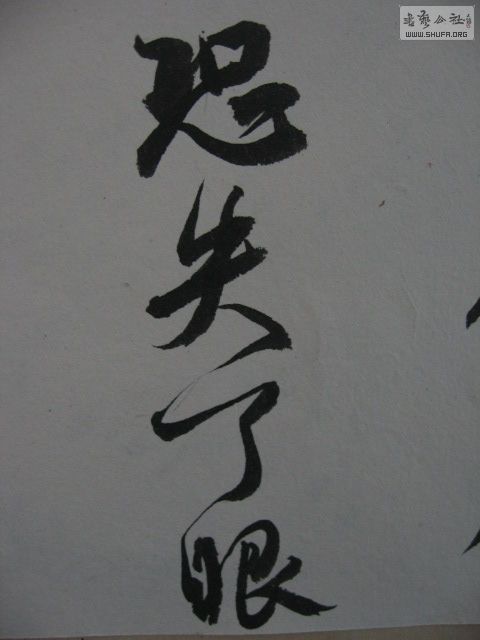 書藝公社
WWW.SHUFA.ORG
失了眼